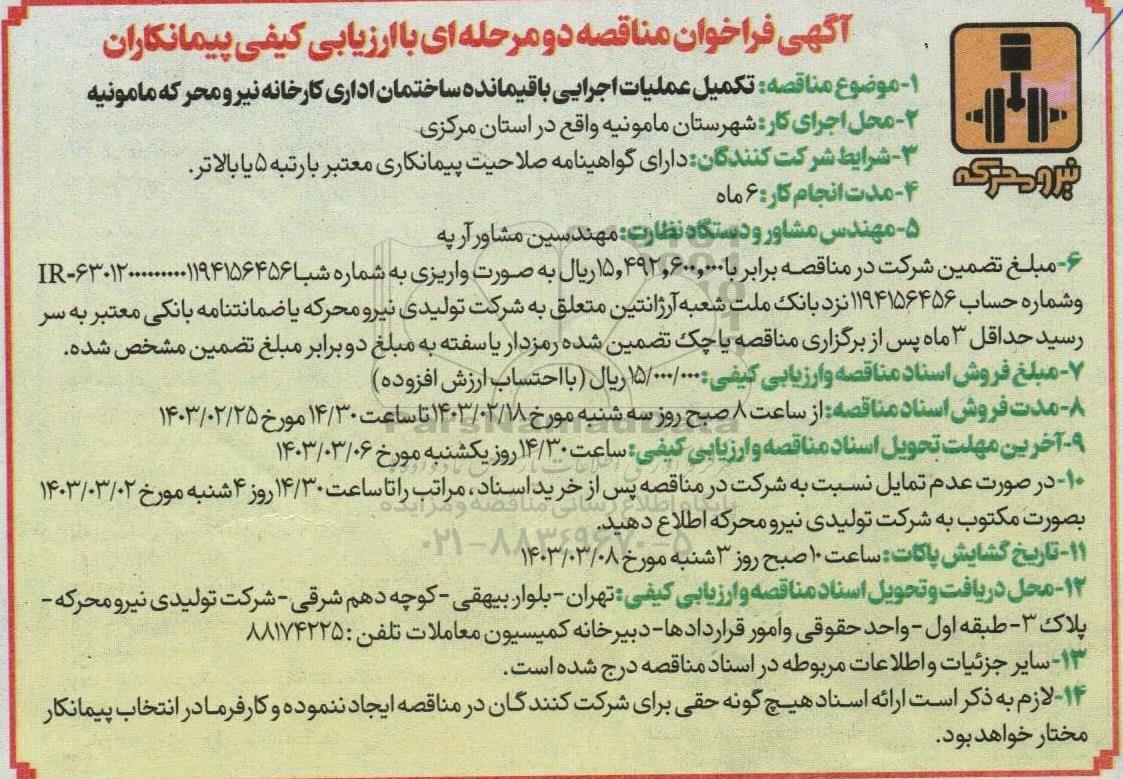 آگهی فراخوان مناقصه دو مرحله ای با ارزیابی کیفی پیمانکاران
نیرو محرکه
۱-موضوع مناقصه: تکمیل عملیات اجرایی باقیمانده ساختمان اداری کارخانه نیرو محرکه مامونیه
۲-محل اجرای کار: شهرستان مامونیه واقع در استان مرکزی
۳-شرایط شرکت کنندگان: دارای گواهینامه صلاحیت پیمانکاری معتبر با رتبه ۵ یا بالاتر.
۴-مدت انجام کار: ۶ ماه
۵-مهندس مشاور و دستگاه نظارت: مهندسین مشاور آریه
۶-مبلغ تضمین شرکت در مناقصه برابر با ۱۵,۴۹۲,۶۰۰,۰۰۰ ریال به صورت واریزی به شماره شبا IR-۶۳۰۱۲۰۰۰۰۰۰۰۰۰۰۱۱۹۴۱۵۶۴۵۶
وشماره حساب ۱۱۹۴۱۵۶۴۵۶ نزد بانک ملت شعبه آرژانتین متعلق به شرکت تولیدی نیرو محرکه یا ضمانتنامه بانکی معتبر به سر
رسید حداقل ۳ ماه پس از برگزاری مناقصه یا چک تضمین شده رمزدار یا سفته به مبلغ دو برابر مبلغ تضمین مشخص شده.
۷-مبلغ فروش اسناد مناقصه وارزیابی کیفی: ۱۵/۰۰۰/۰۰۰ ریال (با احتساب ارزش افزوده)
۸-مدت فروش اسناد مناقصه: از ساعت ۸ صبح روز سه شنبه مورخ ۱۴۰۳/۰۲/۱۸ تا ساعت ۱۴/۳۰ مورخ ۱۴۰۳/۰۲/۲۵
۹-آخرین مهلت تحویل اسناد مناقصه و ارزیابی کیفی: ساعت ۱۴/۳۰ روز یکشنبه مورخ ۱۴۰۳/۰۳/۰۶
۱۰-در صورت عدم تمایل نسبت به شرکت در مناقصه پس از خرید اسناد، مراتب را تا ساعت ۱۴/۳۰ روز ۴ شنبه مورخ ۱۴۰۳/۰۳/۰۲
بصورت مکتوب به شرکت تولیدی نیرو محرکه اطلاع دهید.
۱۱-تاریخ گشایش پاکات: ساعت ۱۰ صبح روز ۳ شنبه مورخ ۱۴۰۳/۰۳/۰۸
۱۲-محل دریافت و تحویل اسناد مناقصه وارزیابی کیفی: تهران - بلوار بیهقی - کوچه دهم شرقی - شرکت تولیدی نیرو محرکه -
پلاک ۳- طبقه اول - واحد حقوقی وامور قراردادها- دبیرخانه کمیسیون معاملات تلفن: ۸۸۱۷۴۲۲۵
۱۳-سایر جزئیات و اطلاعات مربوطه در اسناد مناقصه درج شده است.
۱۴-لازم به ذکر است ارائه اسناد هیچ گونه حقی برای شرکت کنندگان در مناقصه ایجاد ننموده و کارفرما در انتخاب پیمانکار
مختار خواهد بود.
ParsNamadData
پایگاه اطلاع رسانی مناقصه و مزایده
۰۲۱-۸۸۳۴۹۶۷۰-۵